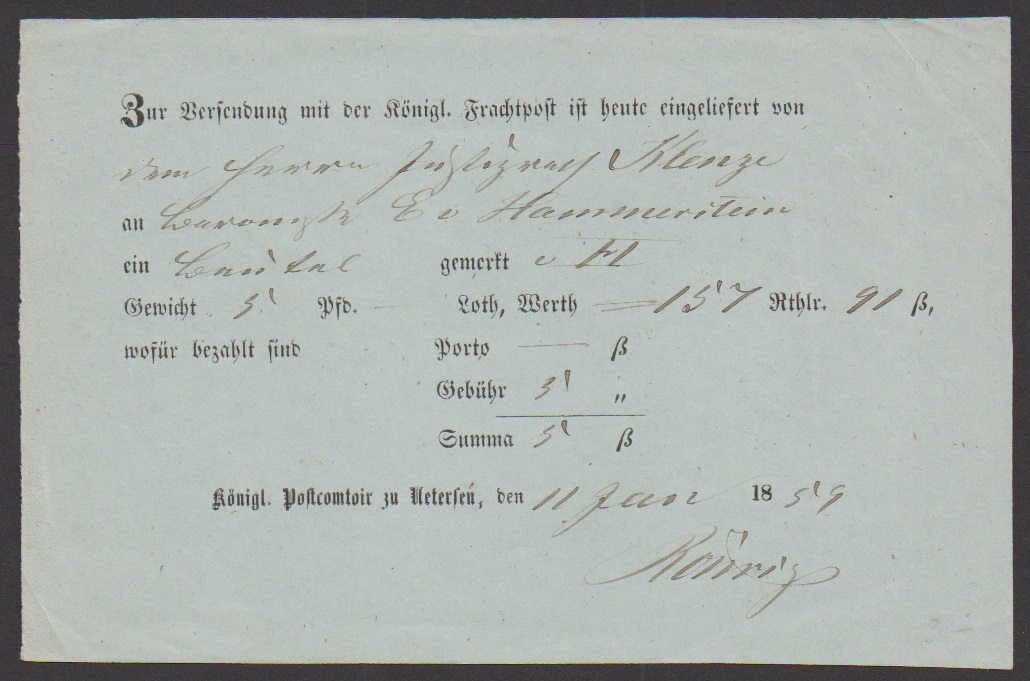 Zur Versendung mit der Königl. Frachtpost ist heute eingeliefert von
dem Herrn Justizrath Klenze
an Baronesse E v Hammerstein
ein Beutel gemerkt v H
Gewicht 5 Pfd. — Loth, Werth — 157 Rthlr. 91 ß,
wofür bezahlt sind Porto — ß
Gebühr 5 „
Summa 5 ß
Königl. Postcomtoir zu Uetersen, den 11 Jan 1859